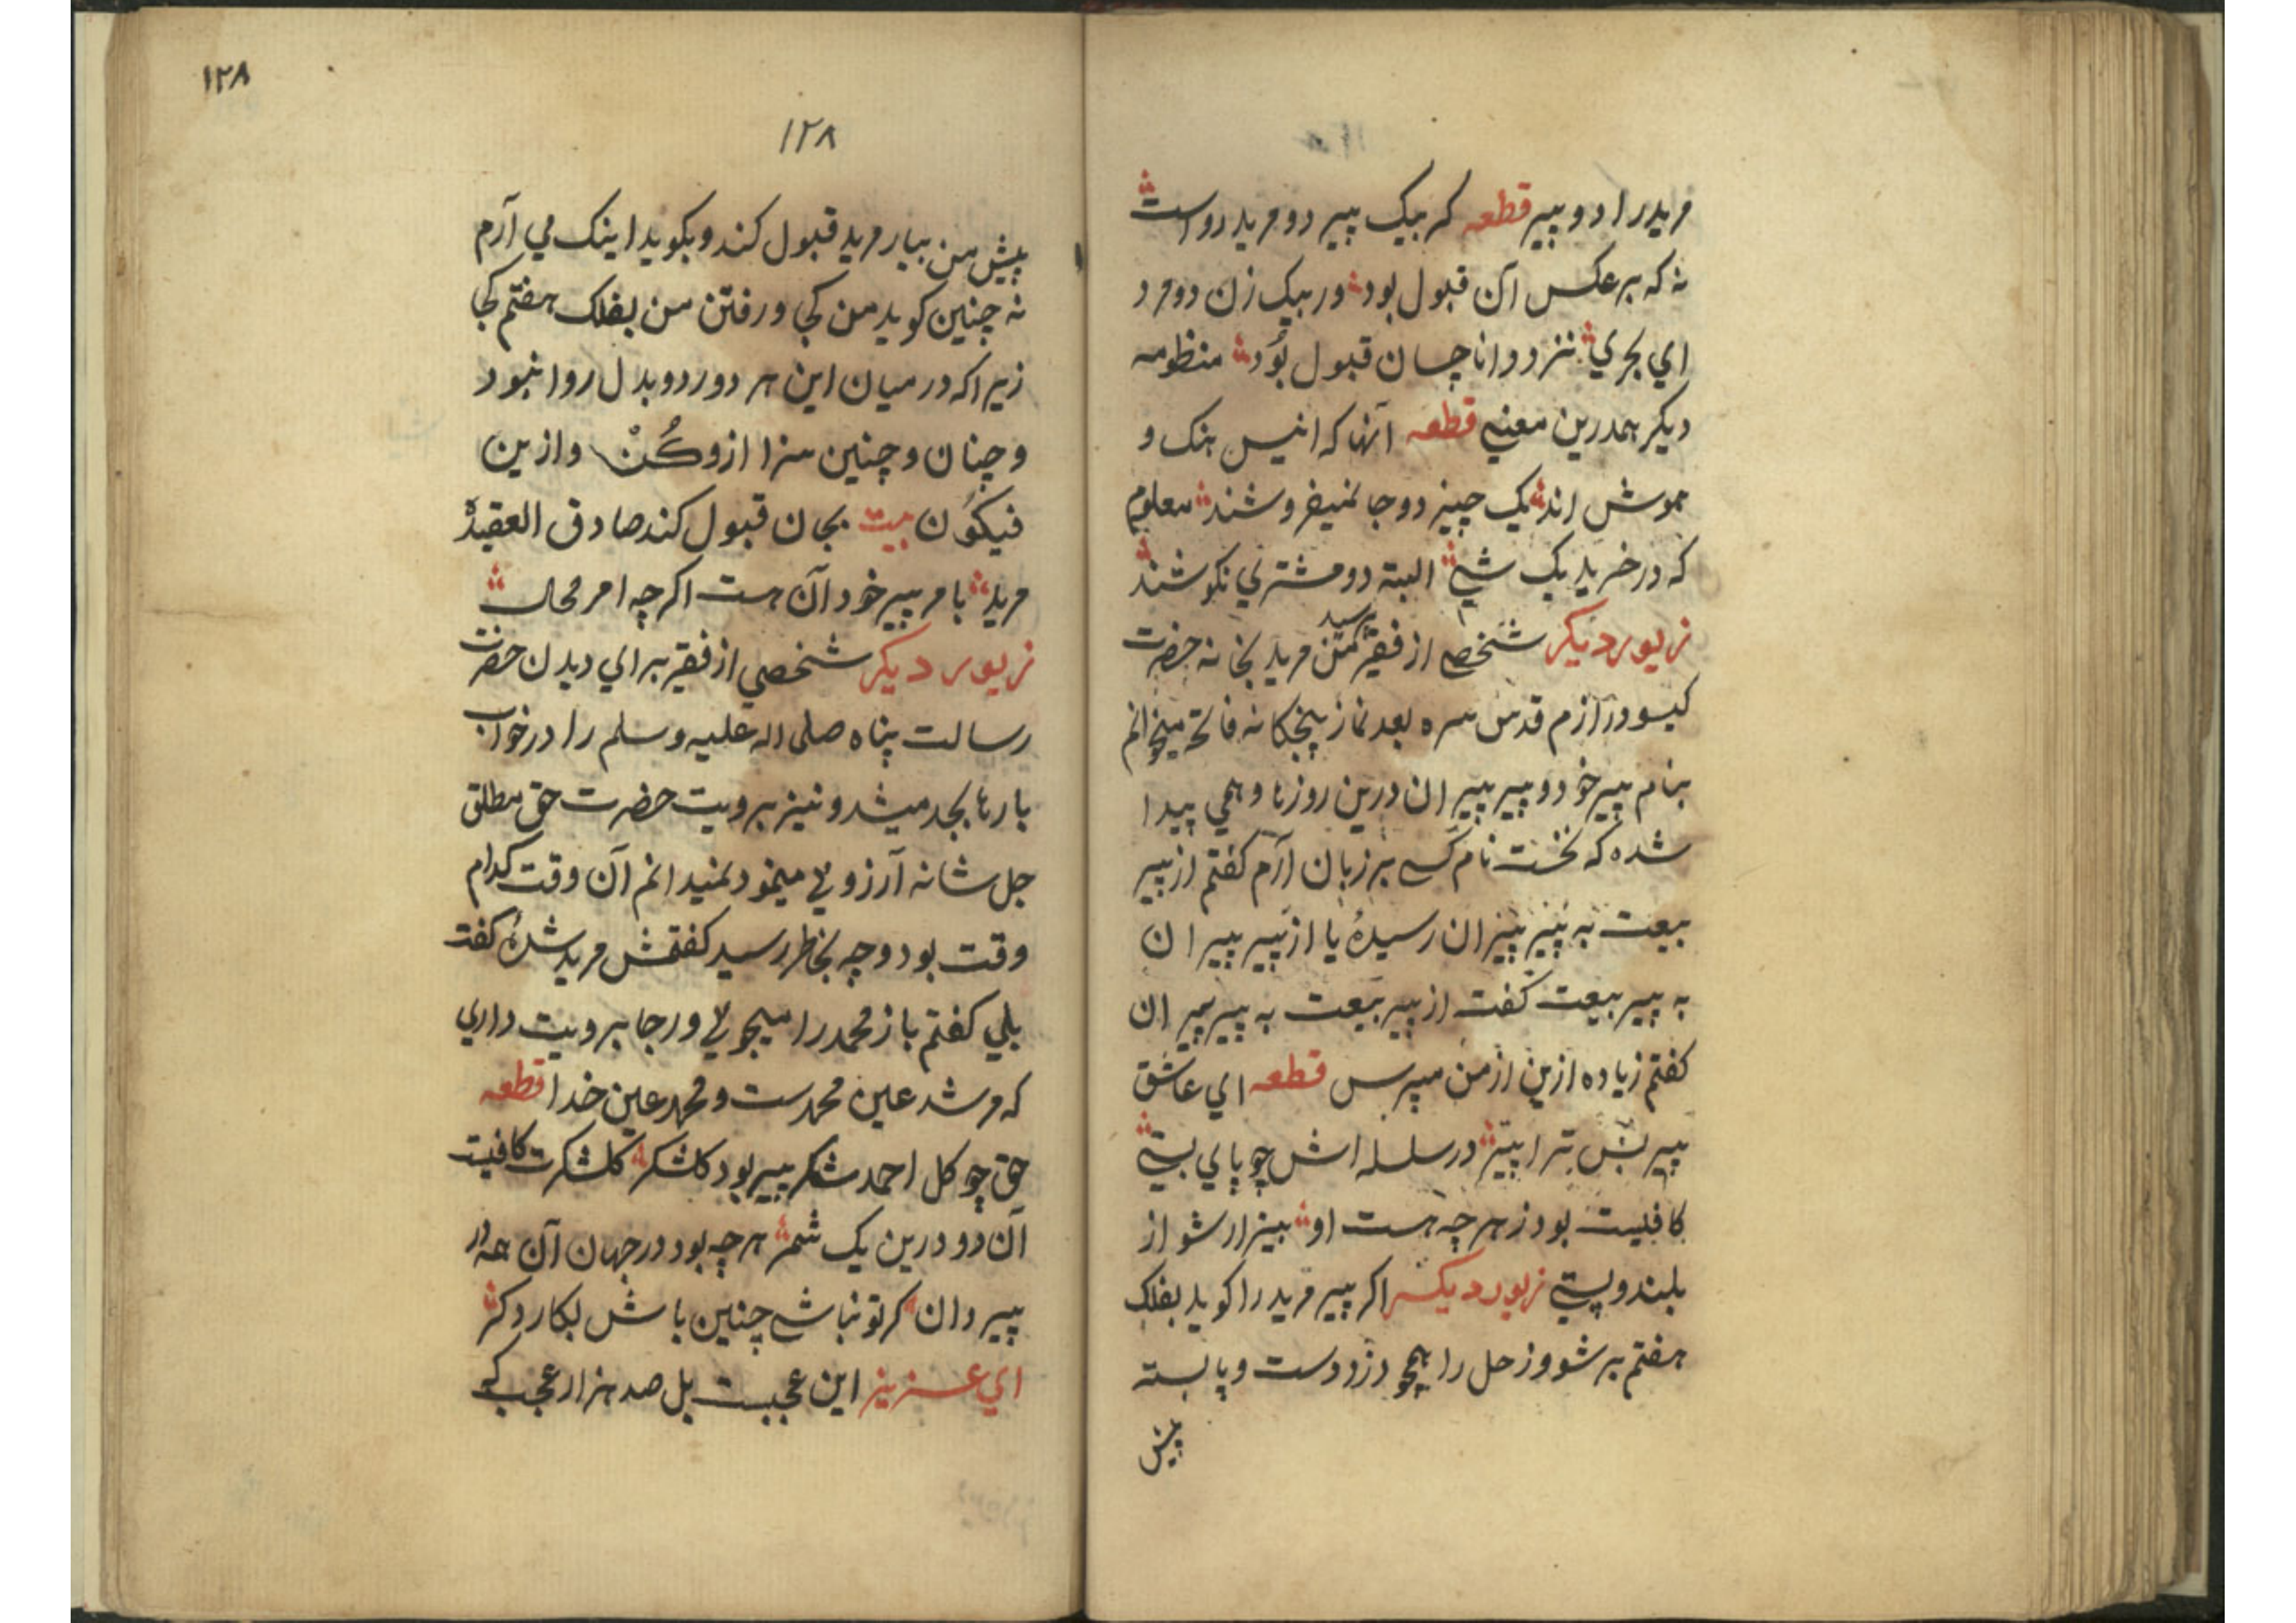 مریدرا دو پیر قطعه کر بیک پیر دو مرید رواست
نه که برعکس آن قبول بود ور بیک زن دو مرد
اي بحري نزد دانا چسان قبول بَوَد منظومه
دیکر همدرین معنی قطعه آنها که انیس بنک و
موش اند یک چیز دو جا نمیفروشند معلوم
که در خرید یک شی البته دو مشتري نکوشند
زیور دیکر شخصی از فقیر مرید بخانه حضرت
کیسو دراز م قدس سره بعد نماز پنجکانه فاتحه میخوانم
بنام پیر خود و پیر پیران درین روزها وهمي پیدا
شده که نخست نام کسے بر زبان آرم کفتم از پیر
بیعت به پیر پیران رسیدهٔ یا از پیر پیران
به پیر بیعت کفت از پیر بیعت به پیر پیران
کفتم زیاده ازین از من مپرس قطعه اي عاشق
پیر بس ترا پیر در سلسله اش چو پاي بستی
کافیست بود ز هر چه هست او بیزار شو از
بلند و پستی زیور دیکر اکر پیر مرید را کوید بفلک
هفتم بر شو و زحل را همچو دزد دست و پا بسته
پیش
۱۲۸
۱۲۸
پیش من بیار مرید قبول کند و بکوید اینک مي آرم
نه چنین کوید من کجا و رفتن من بفلک هفتم کجا
زیرا که در میان این هر دو رد و بدل روا نبود
و چنان و چنین سزا ازو کُنْ و ازین
فیکَوُن بیت بجان قبول کند صادق العقیدهٔ
مرید بامر پیر خود آن هست اکر چه امر محالست
زیور دیکر شخصي از فقیر براي دیدن حضرت
رسالت پناه صلی اله علیه وسلم را در خواب
بارها بجد میشد و نیز برویت حضرت حق مطلق
جل شانه آرزو ئي مینمود نمیدانم آن وقت کدام
وقت بود و چه بخاطر رسید کفتمش مرید شدهٔ کفت
بلي کفتم باز محمد را میجوئي و رجا برویت داري
که مرشد عین محمدست و محمد عین خدا قطعه
حق چو کل احمد شکر پیر بود کلشکر کلشکرت کافیست
آن دو درین یک شمر هر چه بود در جهان آن همه در
پیر دان کر تو نباشے چنین باش بکار دکر
اي عزیز این عجبست بل صد هزار عجب که